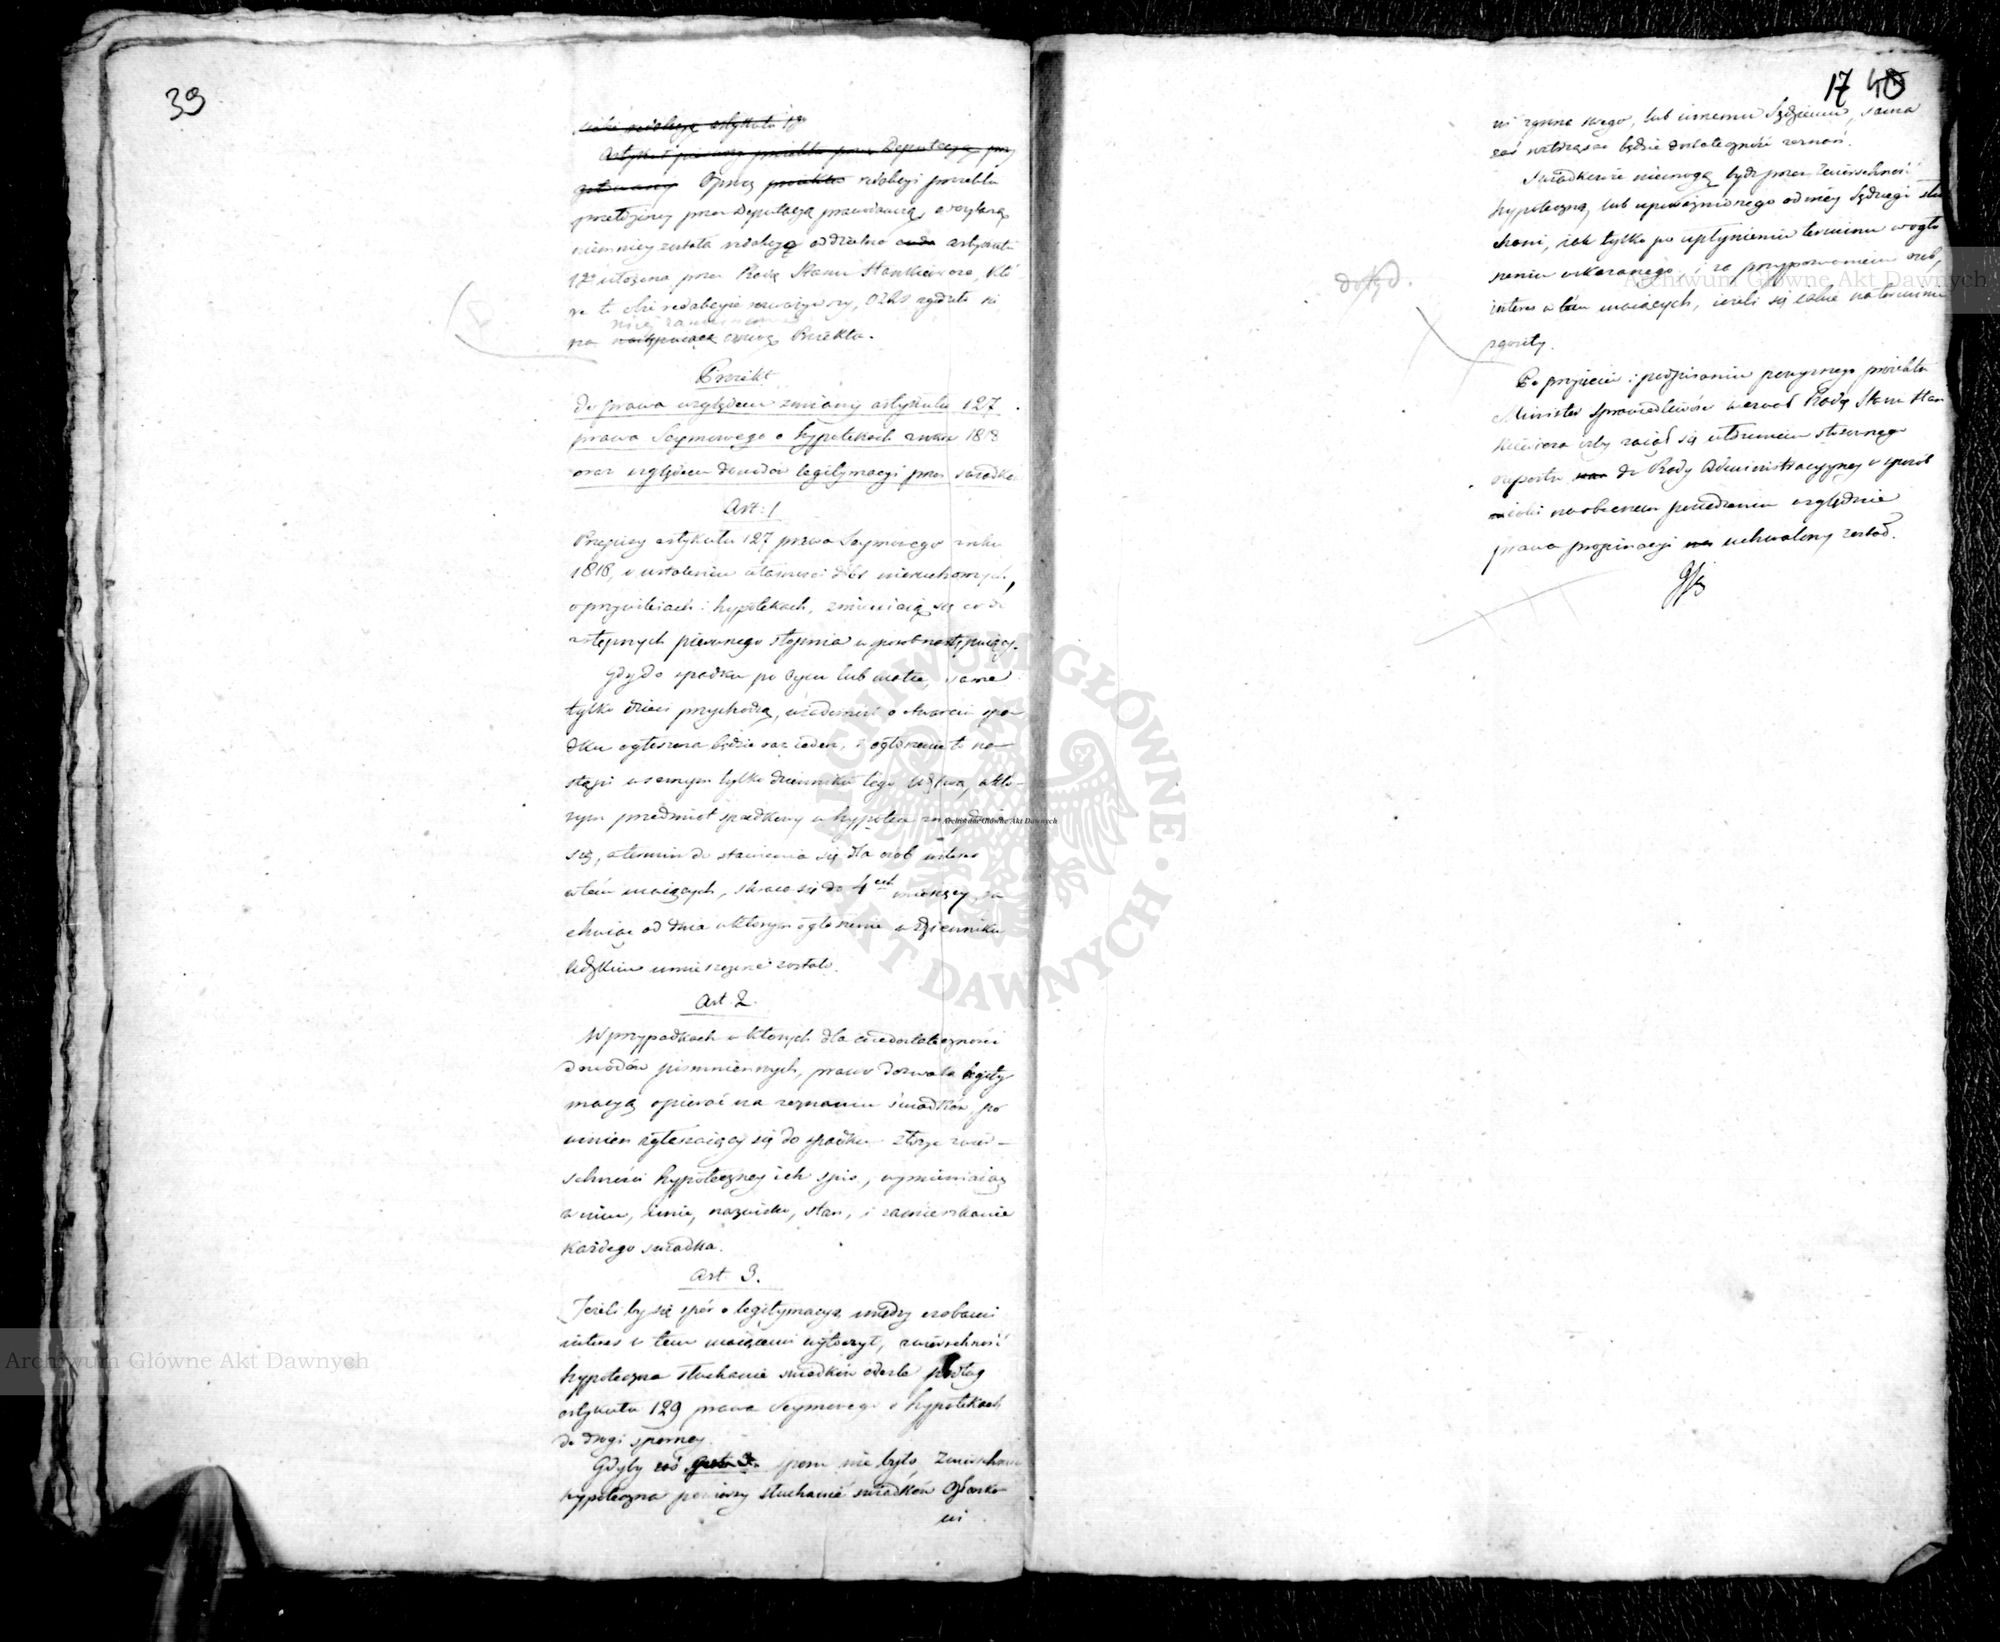 39
Oprócz redakcyi proiektu
przełożoney przez Deputacyą prawodawczą, 
niemniey została redakcya oddzielna artykułu
1go ułożona przez Radcę Stanu Stankiewicza, któ-
re to obie redakcyie rozważywszy, zgodzili
na osnowę Proiektu.
Proiekt
do prawa względem zmiany artykułu 127
prawa Seymowego o hypotekach z roku 1818
oraz względem dowodów legitymacyi przez świadków
Art: 1
Przepisy artykułu 127 prawa Seymowego z roku
1818, o ustaleniu własności dóbr nieruchomych,
o przywileiach i hypotekach, zmieniaią się co do
wstępnych pierwszego stopnia w sposób następuiący.
Gdy do spadku po Oycu lub matce, same
tylko dzieci przychodzą, wiadomość o otwarciu spa-
dku ogłoszona będzie raz ieden, i ogłoszenie to na-
stąpi w samym tylko dzienniku tego Wdztwa, w któ-
rym przedmiot spadkowy w hypotece znayduie
się, a termin do stawienia się dla osób interes
w tem maiących, skraca się do 4ech miesięcy, ra-
chuiąc od dnia w którym ogłoszenie w Dzienniku
Wdzkim umieszczone zostało.
Art. 2.
W przypadkach w których dla niedostateczności
dowodów piśmiennych, prawo dozwala legity-
macyą opierać na zeznaniu świadków, po-
winien zgłaszaiący się do spadku złożyć zwierz-
chności hypoteczney ich spis, wymieniaiąc
w nim, imie, nazwisko, stan, i zamieszkanie
każdego świadka.
Art. 3.
Jeżeliby się spór o legitymacyą między osobami
interes w tem maiącemi wytoczył, zwierzchność
hypoteczna słuchanie świadków odeśle podług
artykułu 129 prawa Seymowego o hypotekach
do drogi sporney.
Gdyby zaś sporu nie było Zwierzchność
hypoteczna poruczy słuchanie świadków Członko-
wi
17 40
wi z grona swego, lub innemu Sędziemu, sama
zaś roztrząsać będzie dostateczność zeznań.
Świadkowie niemogą bydź przez Zwierzchność
hypoteczną, lub upoważnionego od niey Sędziego słu-
chani, iak tylko po upłynieniu terminu w ogło-
szeniu wskazanego, i za przypozwaniem osób,
interes w tem maiących, ieżeli się sobie na terminie
zgosiły.
dotąd.
Po przyięciu i podpisaniu powyższego proiektu
Minister Sprawiedliwości wezwał Radcę Stanu Stan-
kiewicza iżby zaiął się ułożeniem stosownego
raportu do Rady Administracyiney w sposób
iaki na obecnem posiedzeniu względnie
prawa propinacyi uchwalony został.